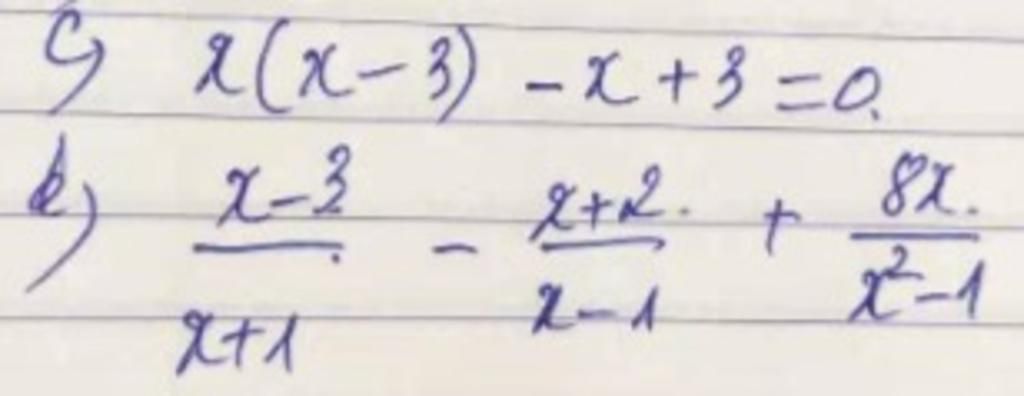 c) x(x-3) -x+3=0.
d) \frac{x-3}{x+1} - \frac{x+2}{x-1} + \frac{8x}{x^2-1}